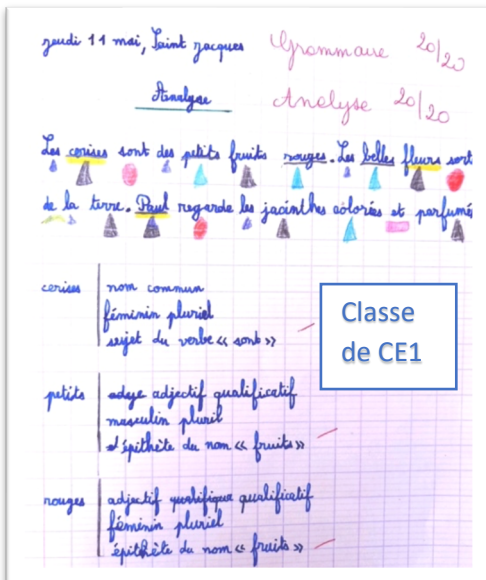 jeudi 11 mai, Saint Jacques Grammaire 20/20
Analyse Analyse 20/20
Les cerises sont des petits fruits rouges. Les belles fleurs sort
de la terre. Paul regarde les jacinthes colorées et parfumé
cerises nom commun
féminin pluriel
sujet du verbe « sont »
Classe
de CE1
petits adje adjectif qualificatif
masculin pluriel
épithète du nom « fruits »
rouges adjectif qualifique qualificatif
féminin pluriel
épithète du nom « fruits »